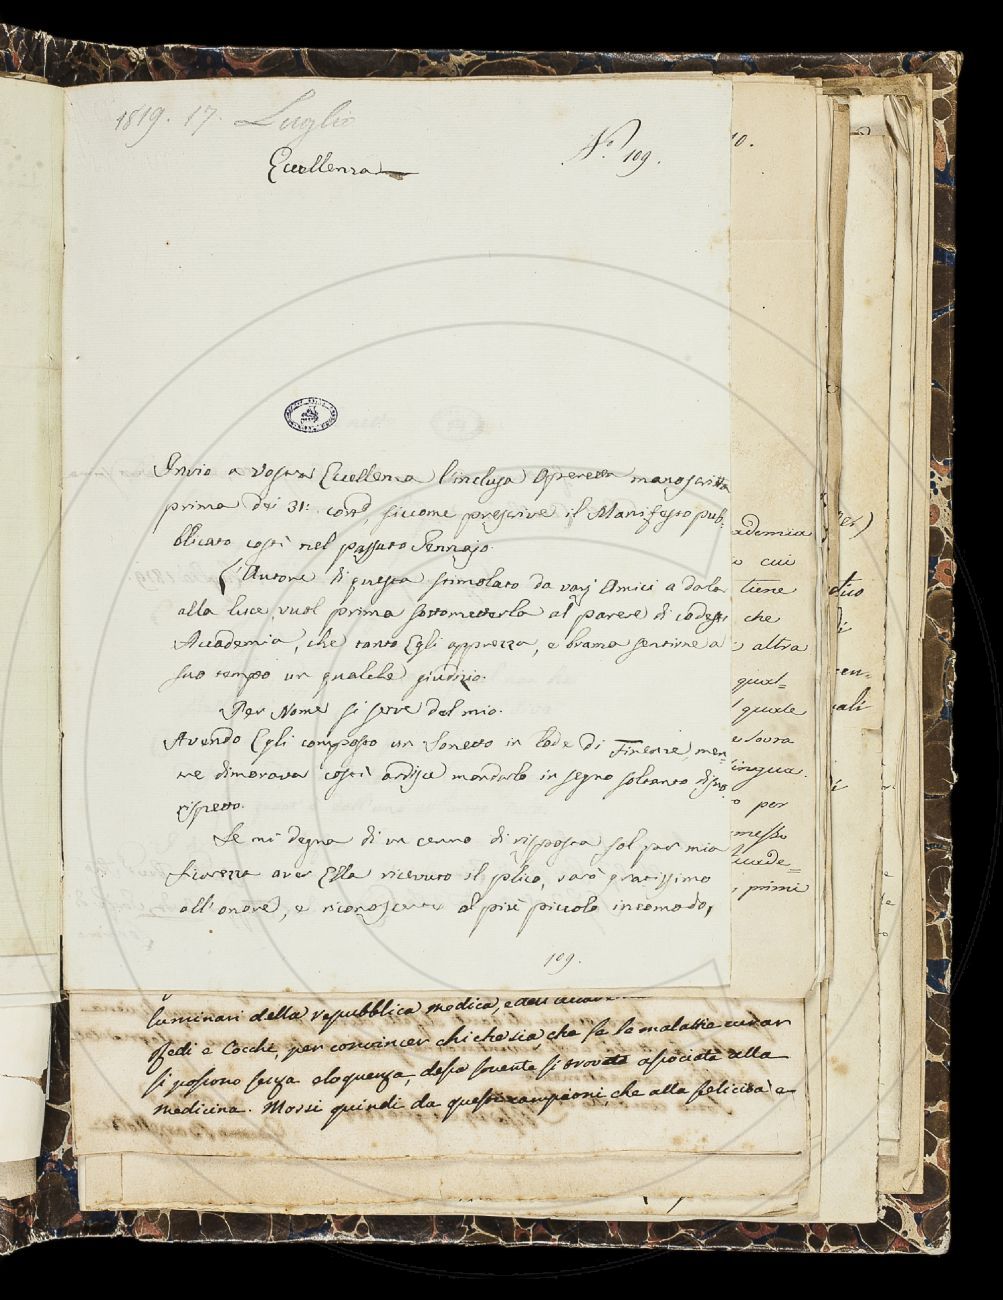 1819. 17. Luglio
N.º 109.
Eccellenza
Invio a Vostra Eccellenza l'inclusa Operetta manoscritta
prima dei 31: corr.e, siccome prescrive il Manifesto pub-
blicato costì nel passato Gennajo.
L'Autore di questa stimolato da varj Amici a darla
alla luce, vuol prima sottometterla al parere di codesta
Accademia, che tanto Egli apprezza, e brama sentirne a
suo tempo un qualche giudizio.
Per Nome si serve del mio.
Avendo Egli composto un Sonetto in lode di Firenze, men-
tre dimorava costì ardisce mandarlo in segno soltanto di suo
rispetto.
Se mi degna di un cenno di risposta sol per mia
sicurezza aver Ella ricevuto il plico, sarò gratissimo
all'onore, e riconoscente al più piccolo incomodo,
109.
10.
ademia
cui
tiene
che
altra
qual=
quale
e sovra
ingua.
per
messo
cade=
primi
luminari della repubblica medica, e
Redi e Cocchi, per convincer chichesia, che se le malattie curar
si possono senza eloquenza, desse sovente si trovate associate alla
medicina. Mossi quindi da questi campioni, che alla felicità e